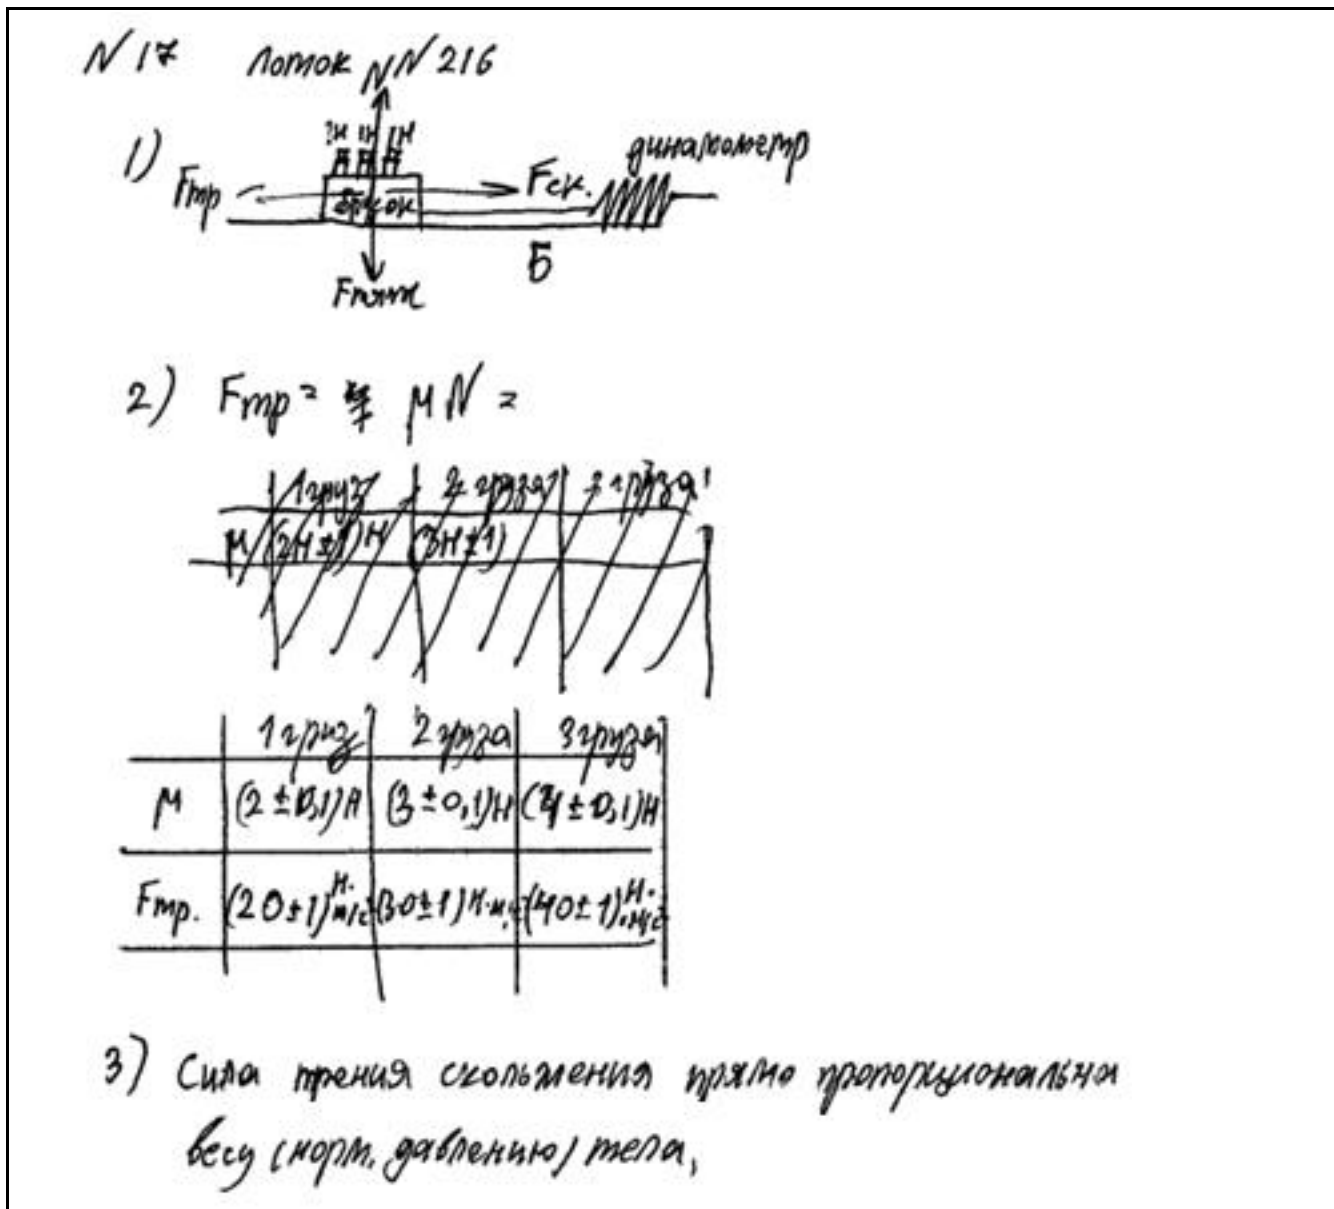 N 17 лоток N 216
N
1) 1Н 1Н 1Н динамометр
Fтр брусок Fск.
Б
Fтяж
2) Fтр = μ N =
1 груз 2 груза 3 груза
μ (2Н ± 1) Н (3Н ± 1)
1 груз 2 груза 3 груза
μ (2 ± 0,1)Н (3 ± 0,1)Н (4 ± 0,1)Н
Fтр. (20 ± 1) Н·м/с (30 ± 1) Н·м/с (40 ± 1) Н·м/с
3) Сила трения скольжения прямо пропорциональна
весу (норм. давлению) тела,